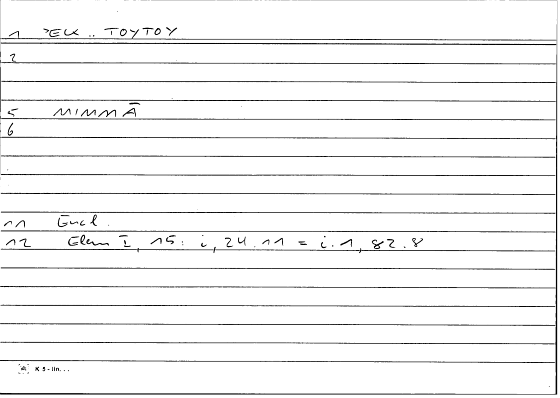 1 ἘΚ .. ΤΟΥΤΟΥ
2
5 ΜΙΜΜᾹ
6
11 Eucl.
12 Elem I, 15: i, 24.11 = i.1, 82.8
K 5 - lin...